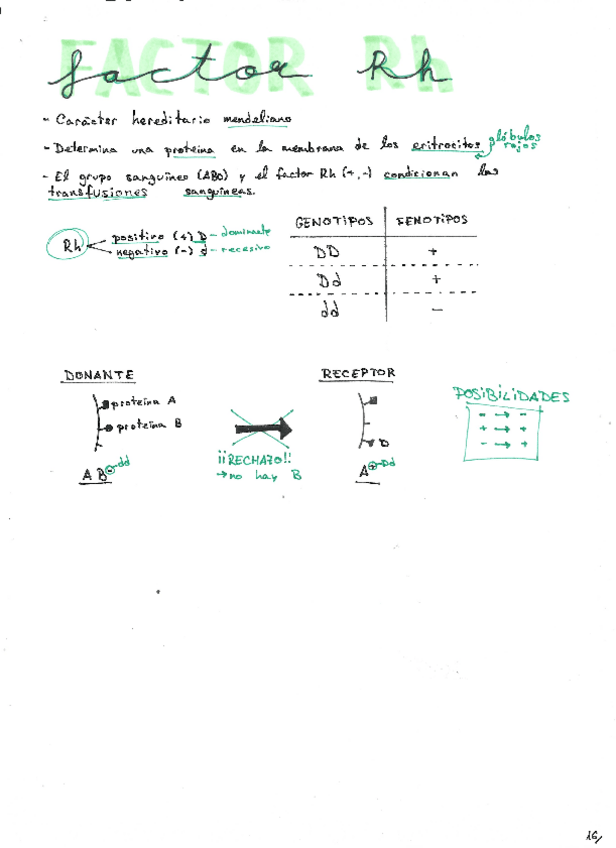 FACTOR Rh
factor Rh
- Carácter hereditario mendeliano
- Determina una proteína en la membrana de los eritrocitos glóbulos rojos
- El grupo sanguíneo (AB0) y el factor Rh (+,-) condicionan las
transfusiones sanguíneas.
Rh
positivo (+) D - dominante
negativo (-) d - recesivo
GENOTIPOS FENOTIPOS
DD +
Dd +
dd -
DONANTE
proteína A
proteína B
AB⊖-dd
¡¡RECHAZO!!
→ no hay B
RECEPTOR
D
A⊕-Dd
POSIBILIDADES
- → -
+ → +
- → +
16/